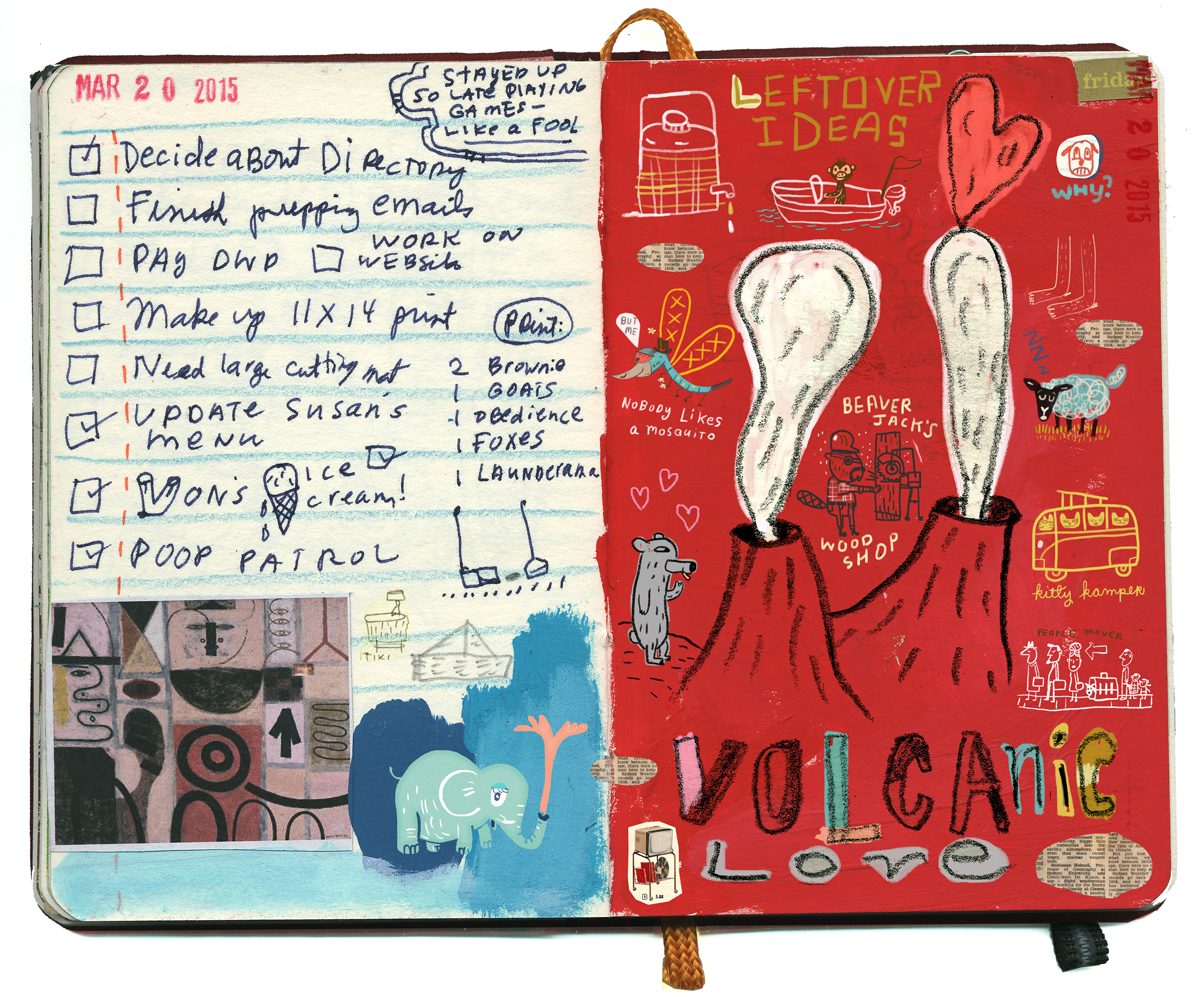 MAR 20 2015
STAYED UP
SO LATE PLAYING
GAMES—
LIKE a FOOL
Decide aBOUT DiRECTORY
Finish prepping emails
PAY DWP
WORK ON
WEBSite
Make up 11X14 print
Need large cutting mat
UPDATE Susan's
menu
VON's
ICE
cream!
POOP PATROL
Print:
2 Brownie
1 GOATS
1 OBedience
1 FOXES
1 LAUNDERAMA
TIKI
LEFTOVER
IDEAS
frida
MAR 20 2015
WHY?
BUT
ME
NOBODY LIKES
a MOSQUITO
ZZZ
BEAVER
JACK'S
WOOD
SHOP
kitty kamper
PEOPLE MOVER
VOLCANiC
LOVe